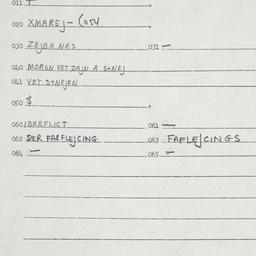 011 I
020 XMAREJ- (054
030 ZEJER NAS 031 —
040 MORGN VET ZAJN A S+NEJ
041 VET S+NEJEN
050 $
060 BAEFLICT 061 —
062 DER FARFLEJCING 063 FAFLEJCINGS
064 — 065 —